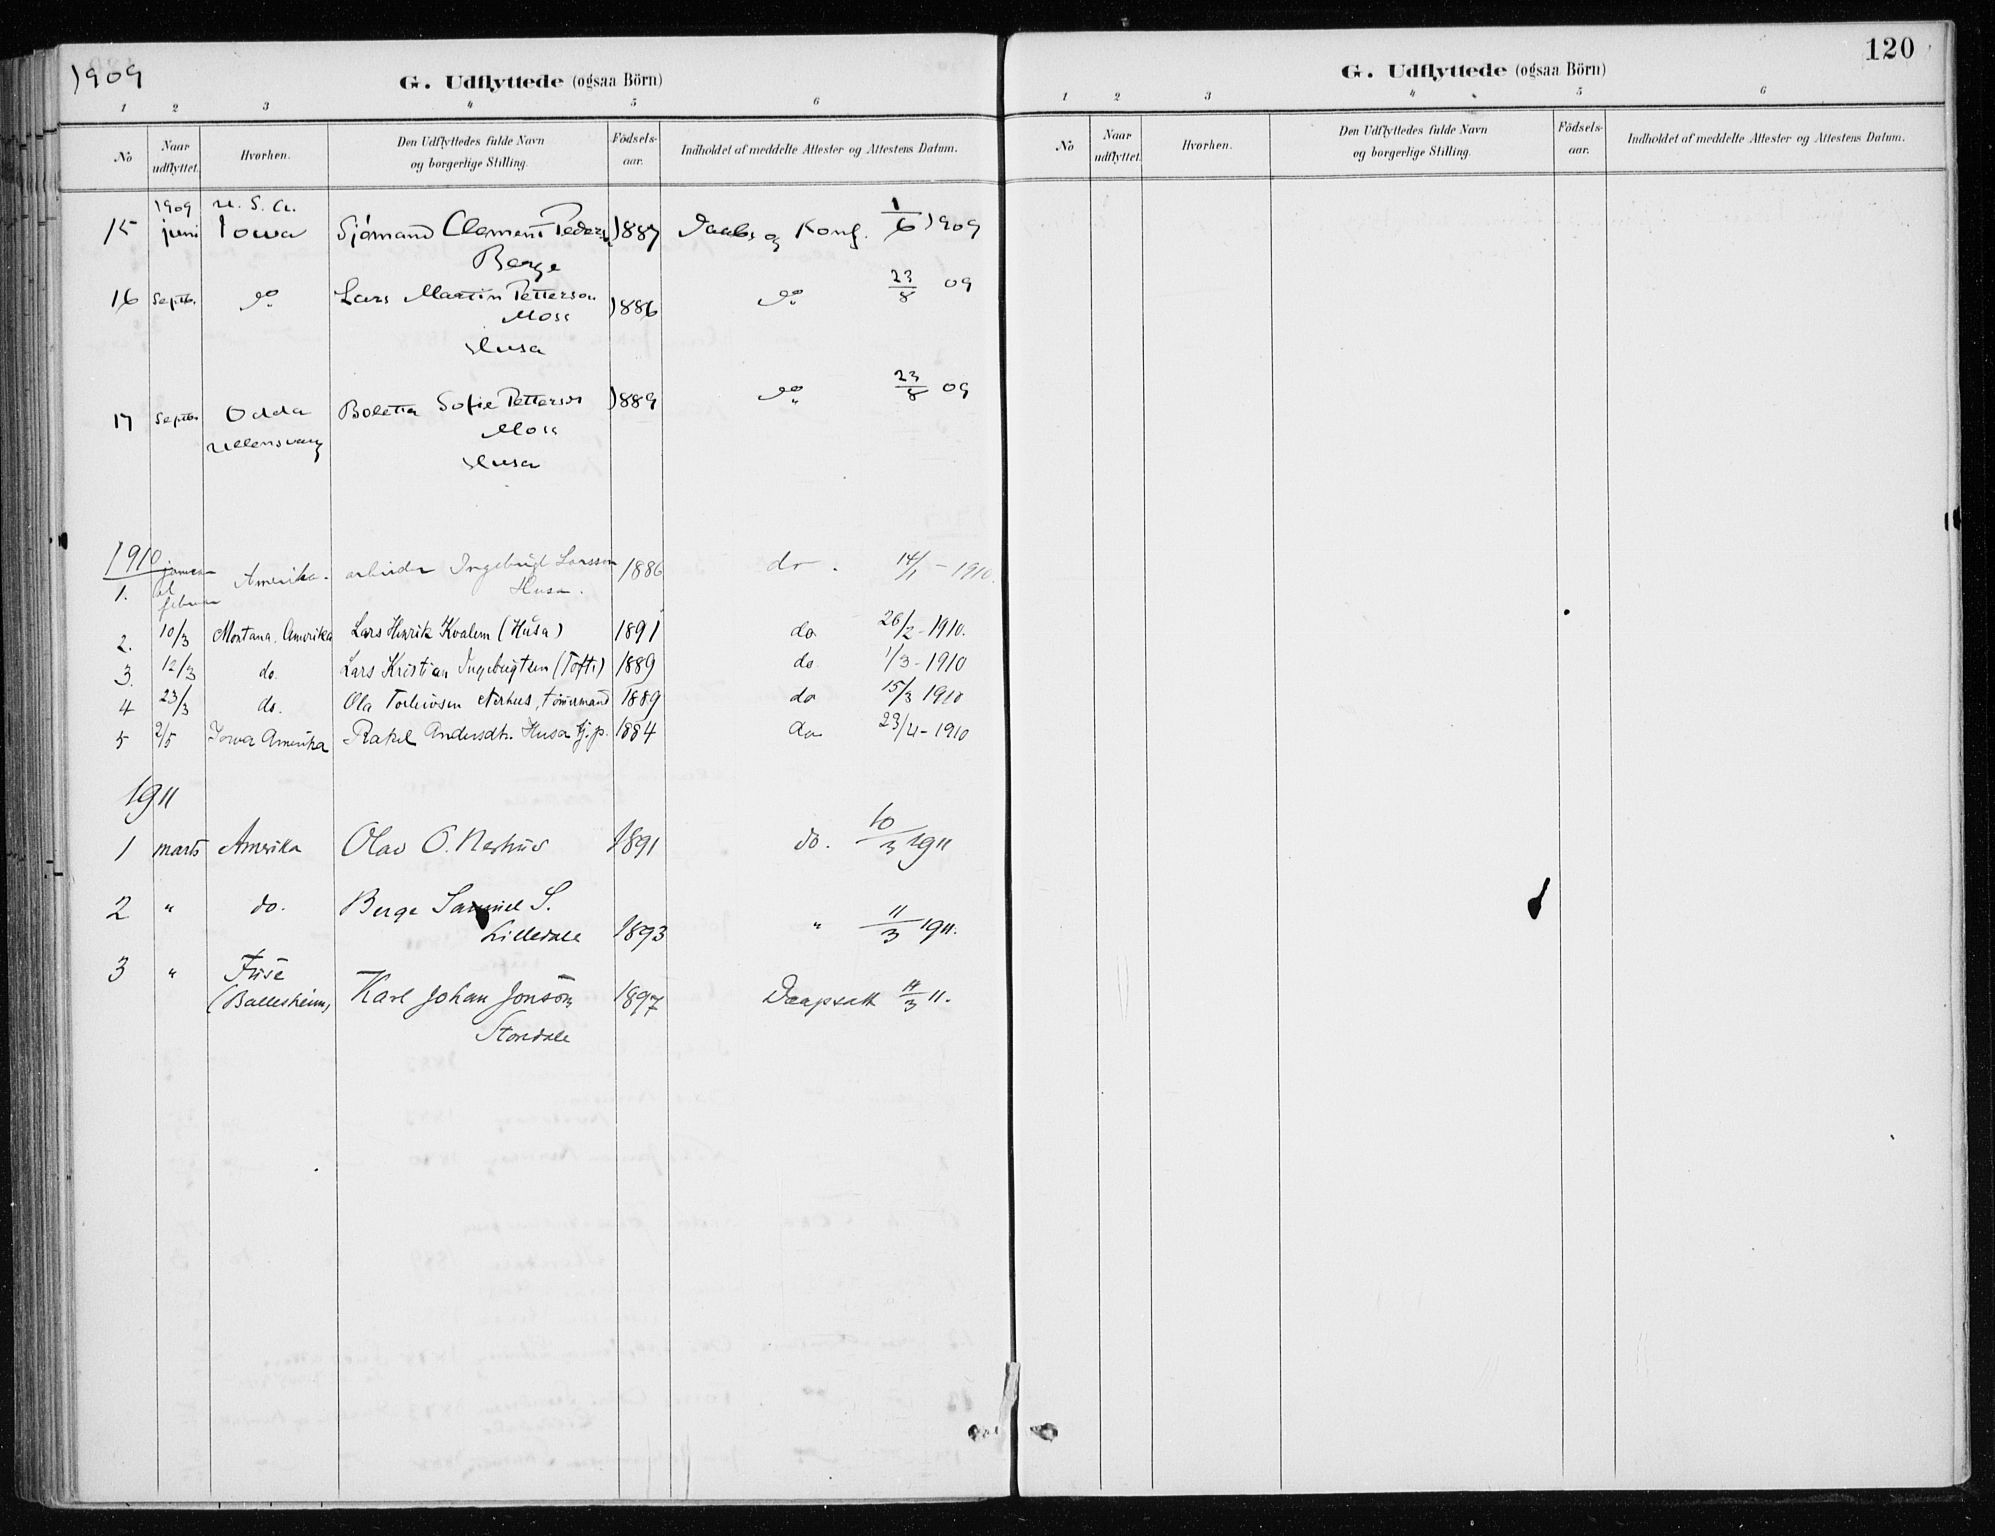 1909
G. Udflyttede (ogsaa Börn)
1 2 3 4 5 6
No Naar udflyttet. Hvorhen. Den Udflyttedes fulde Navn og borgerlige Stilling. Födsels-aar. Indholdet af meddelte Attester og Attestens Datum.
1909 U. S. A.
15 juni Iowa Sjömand Clement Peders 1887 Daabs og Konf. 1/6 1909
Berge
16 Septbr. do Lars Martin Petterson 1886 do 23/8 09
Moss
Husa
17 Septbr. Odda Boletta Sofie Petterson 1889 do 23/8 09
Ullensvang Moss
Husa
1910
1. januar el februar Amerika. arbeider Ingebrigt Larsson 1886 do. 14/1 - 1910.
Husa.
2. 10/3 Montana, Amerika Lars Henrik Kvalem (Husa) 1891 do 26/2 - 1910.
3. 12/3 do. Lars Kristian Ingebrigtsen (Tofte) 1889 do. 1/3 - 1910
4 23/3 do. Ola Torleivsen Nerhus, tömmermand 1889 do 15/3 1910
5 2/5 Iowa Amerika Rakel Andersdtr. Husa tj.p. 1884 do 23/4 - 1910
1911
1 marts Amerika Olav O. Nerhus 1891 do. 10/3 1911
2 " do. Berge Samuel S.
Lilledale 1893 " 11/3 1911.
3 " Fuse
(Ballesheim) Karl Johan Jonson 1897 Daapsatt 11/3 11.
Storedale
120
G. Udflyttede (ogsaa Börn)
1 2 3 4 5 6
No Naar udflyttet. Hvorhen. Den Udflyttedes fulde Navn og borgerlige Stilling. Födsels-aar. Indholdet af meddelte Attester og Attestens Datum.